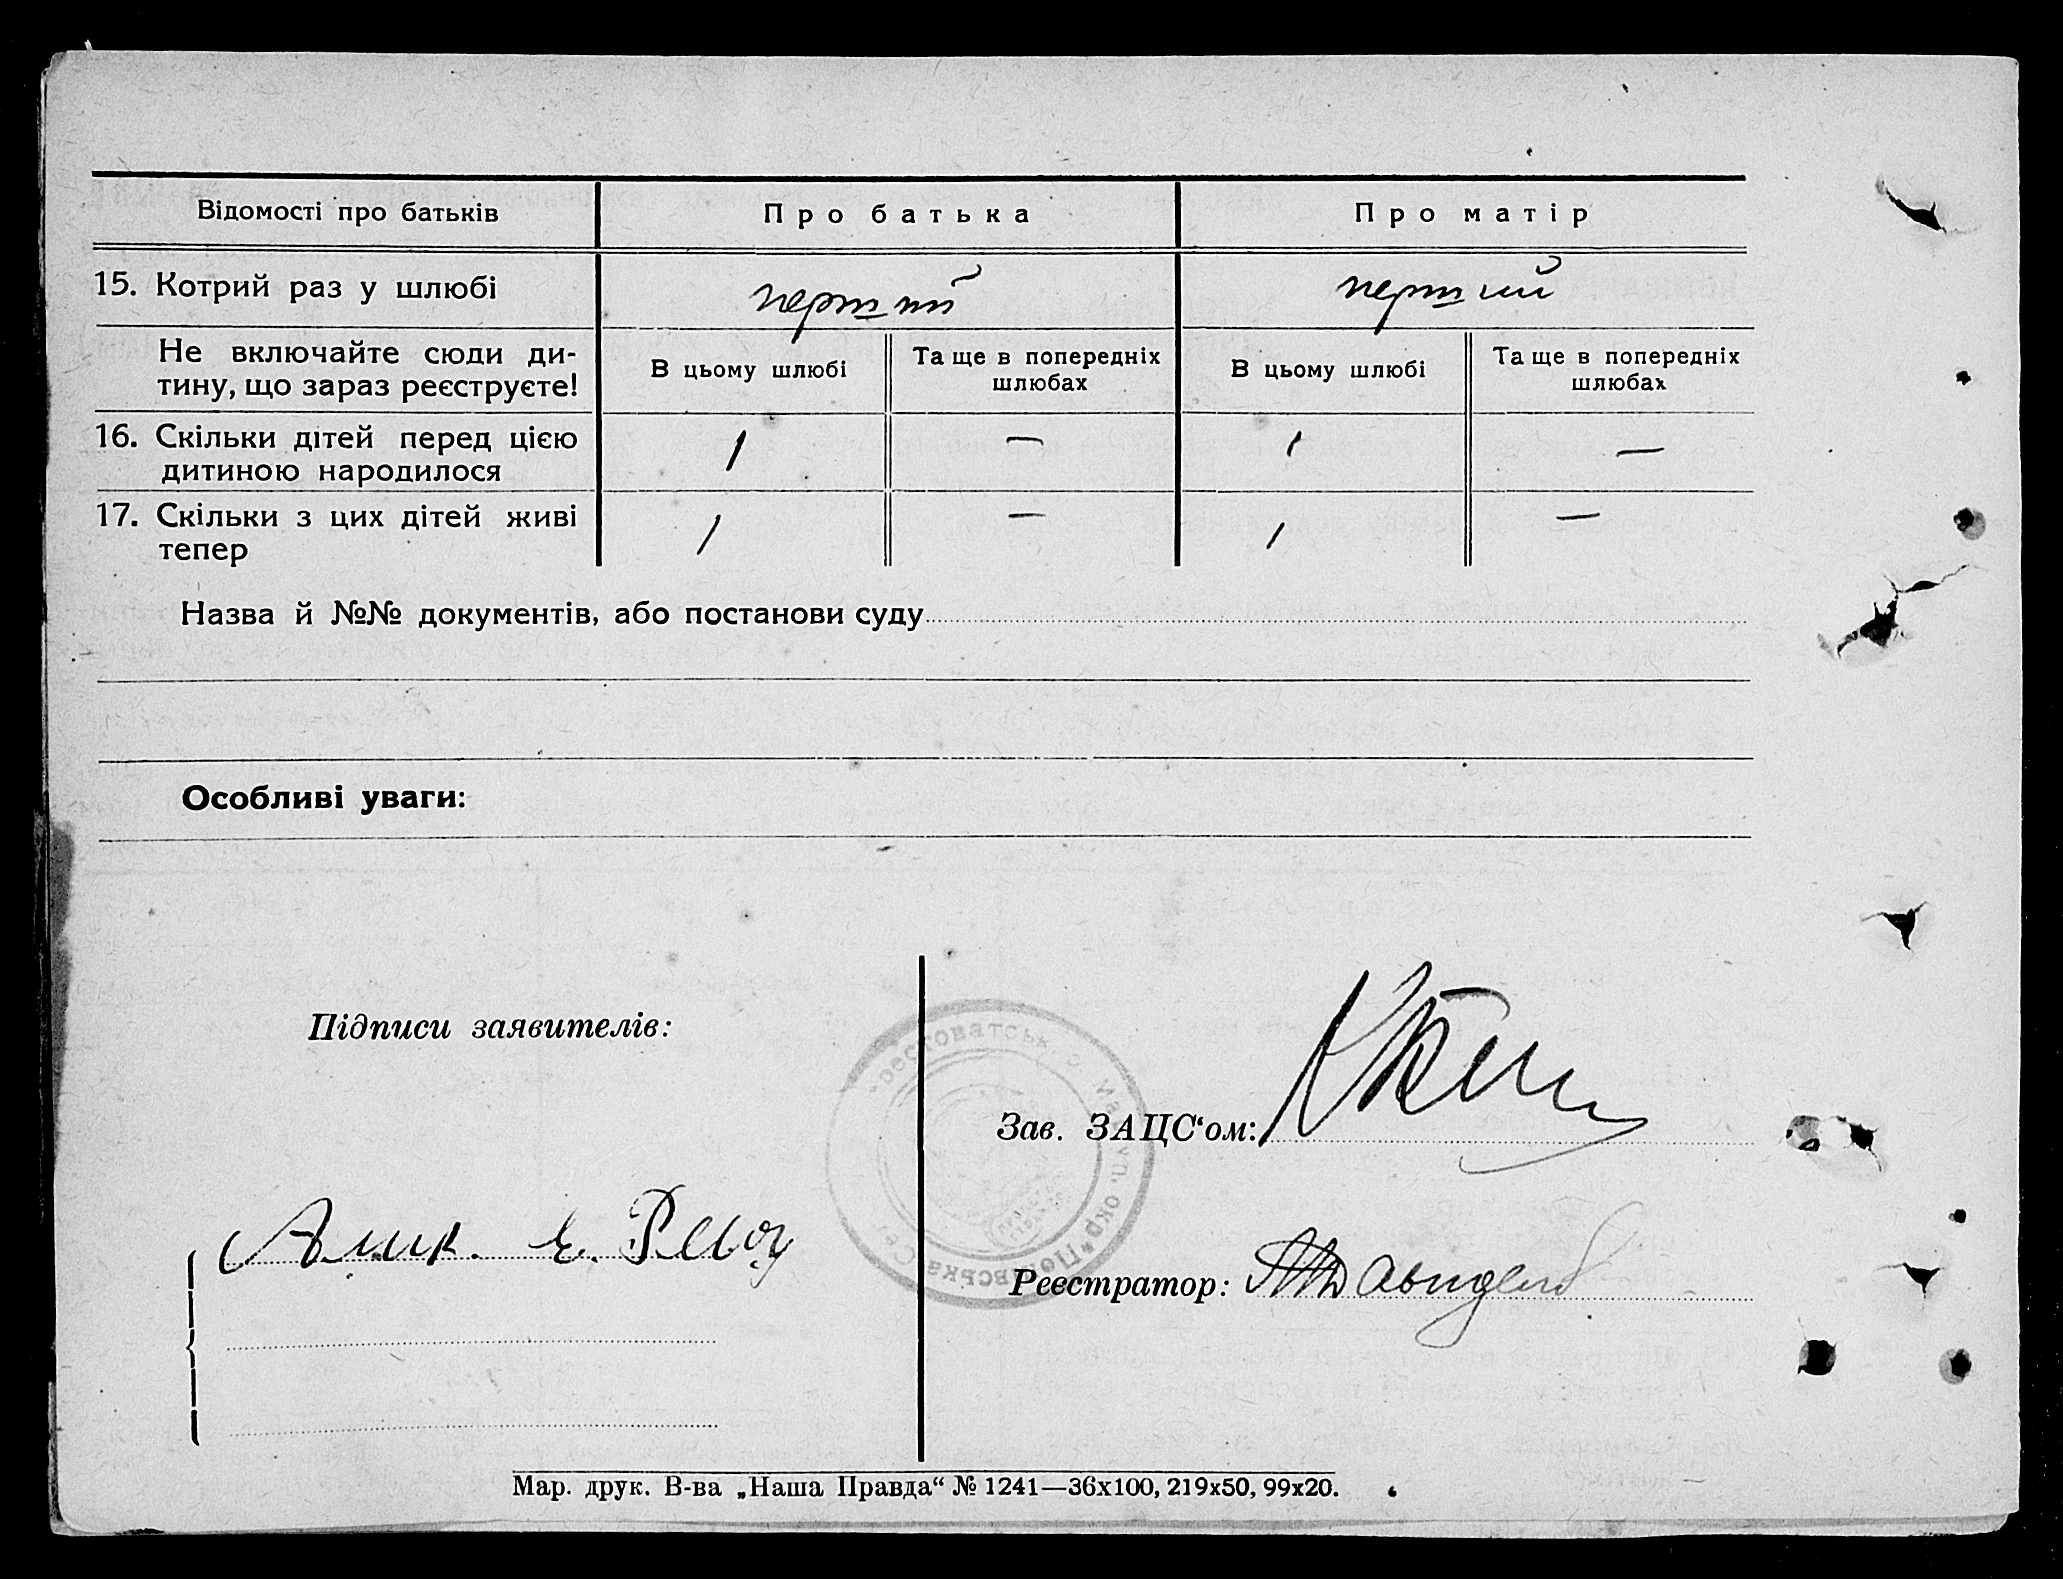 Відомості про батьків Про батька Про матір
15. Котрий раз у шлюбі перший перший
Не включайте сюди ди-
тину, що зараз реєструєте!
В цьому шлюбі Та ще в попередніх
шлюбах
В цьому шлюбі Та ще в попередніх
шлюбах
16. Скільки дітей перед цією
дитиною народилося
1 — 1 —
17. Скільки з цих дітей живі
тепер
1 — 1 —
Назва й №№ документів, або постанови суду
Особливі уваги:
Підписи заявителів:
Зав. ЗАЦС‘ом:
Реєстратор:
Мар. друк. В-ва „Наша Правда“ № 1241—36х100, 219х50, 99х20.